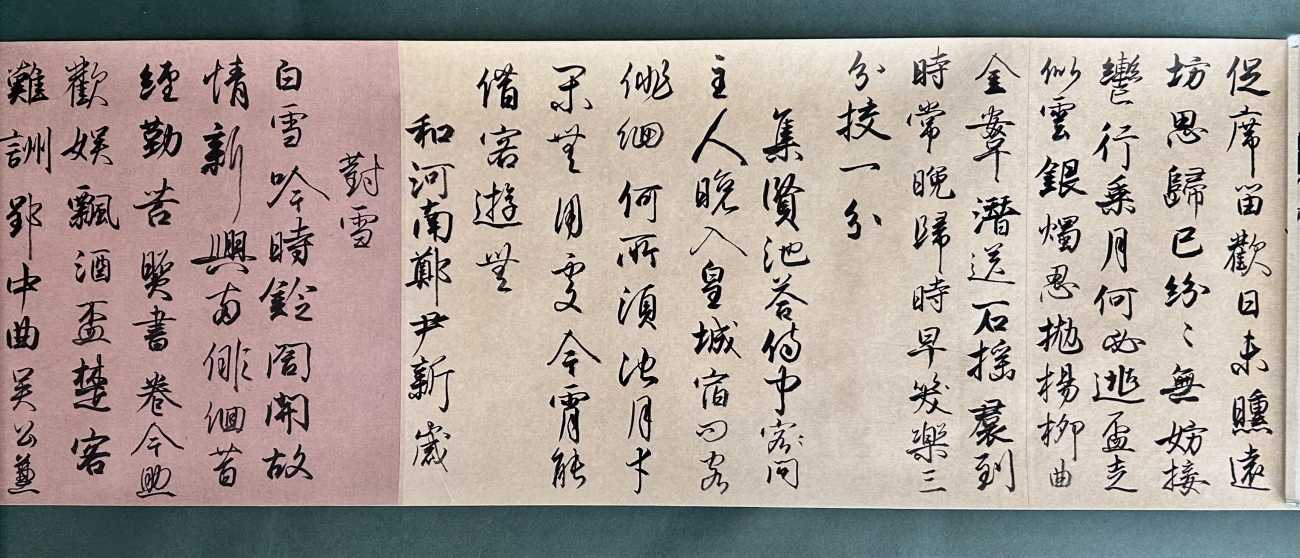 促席留歡日未曛遠
坊思歸已紛〻無妨接
轡行乘月何必逃盃走
似雲銀燭忍拋楊柳曲
金鞍潛送石榴裠到
時常晚歸時早笑樂三
分校一分
集賢池答侍中客問
主人晚入皇城宿問客
俳佪何所須池月幸
閑無用處今宵能
借客遊無
和河南鄭尹新歲
對雪
白雪吟時鈴閤開故
情新興兩俳佪昔
經勤苦照書卷今助
歡娛飄酒盃楚客
難詶郢中曲吳公兼